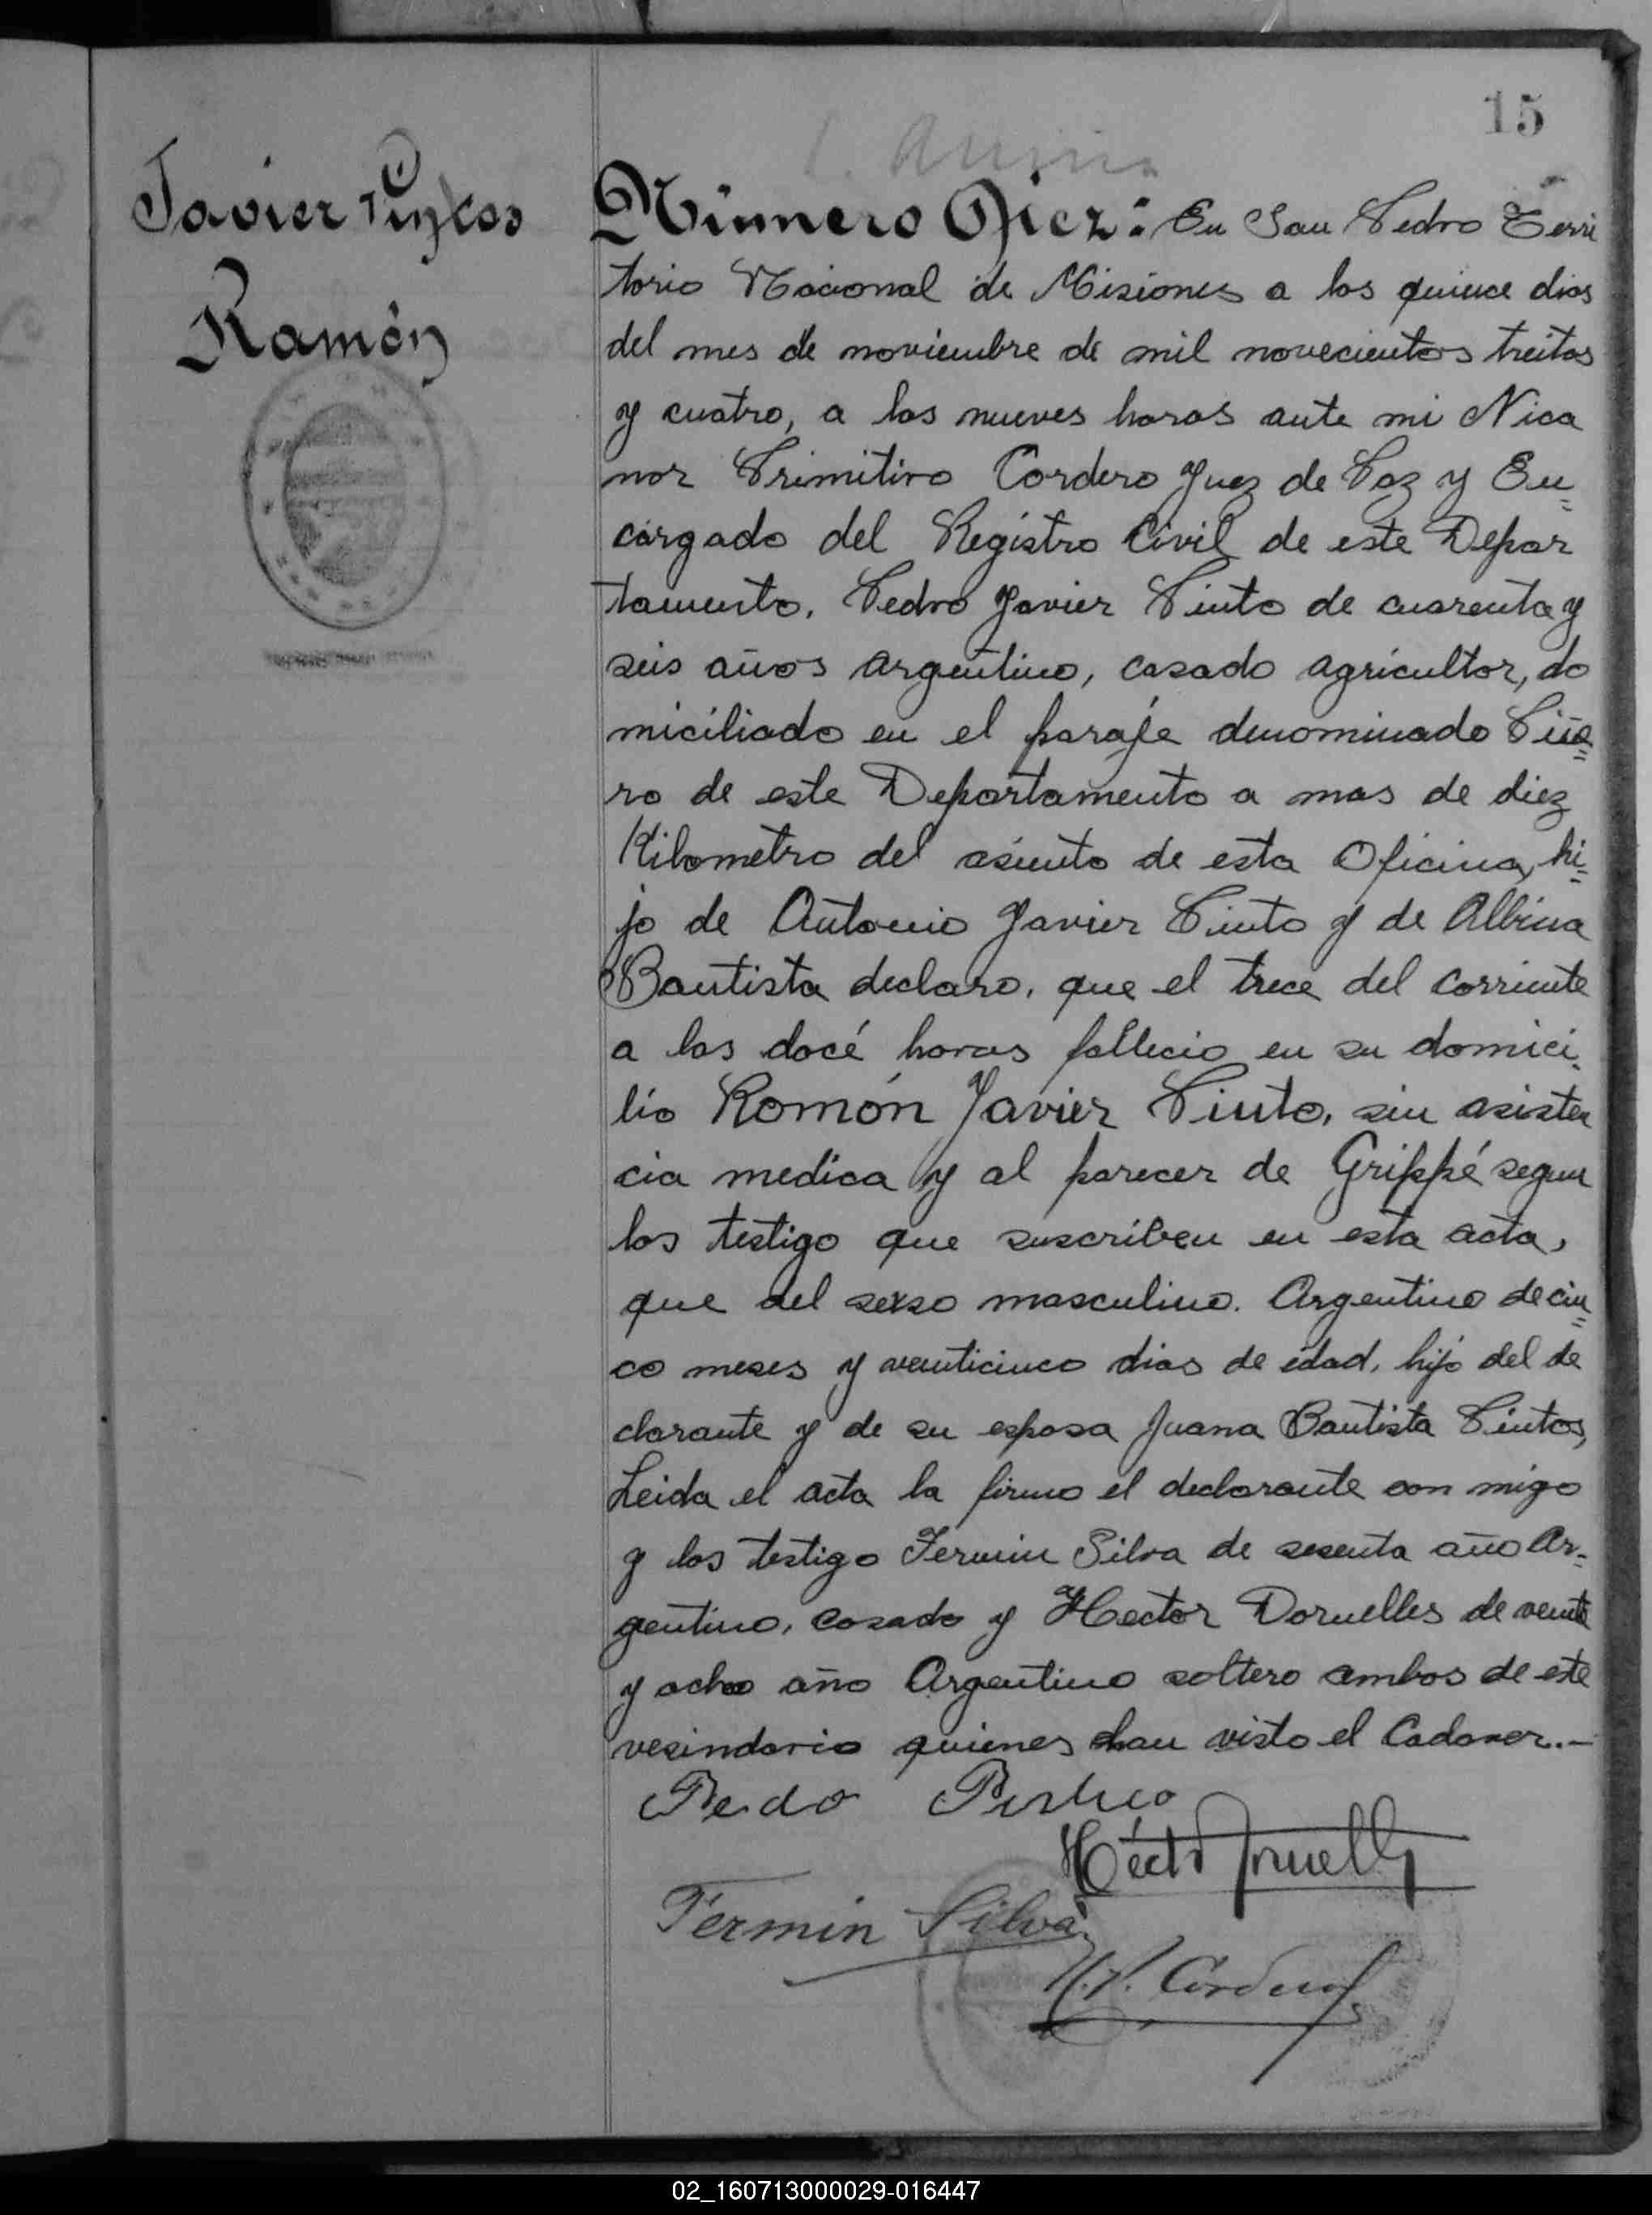 15
Javier Pintos
Ramón
Número Diez: En San Pedro Terri
torio Nacional de Misiones a los quince dias
del mes de noviembre de mil novecientos treitas
y cuatro, a las nueves horas ante mi Nica
nor Primitivo Cordero Juez de Paz y En=
cargado del Registro Civil de este Depar
tamento, Pedro Javier Pinto de cuarenta y
seis años argentino, casado agricultor, do
miciliado en el paraje denominado Piña=
ro de este Departamento a mas de diez
Kilometro del asiento de esta Oficina, hi=
jo de Antonio Javier Pinto y de Albina
Bautista declaro, que el trece del corriente
a las docé horas fallecio en su domici
lio Ramón Javier Pinto, sin asisten
cia medica y al parecer de Grippé segun
los testigo que suscriben en esta acta,
que del sexso masculino. Argentino de cin=
co meses y veinticinco dias de edad, hijo del de
clarante y de su esposa Juana Bautista Pintos,
Leida el acta la firmo el declarante con migo
y los testigo Fermin Silva de sesenta año Ar=
gentino, casado y Hector Dornelles de veinte
y ocho año Argentino soltero ambos de este
vesindario quienes han visto el Cadaver.-
Pedo
Héctor
Fermin Silva
N.P. Cordero
02_160713000029-016447